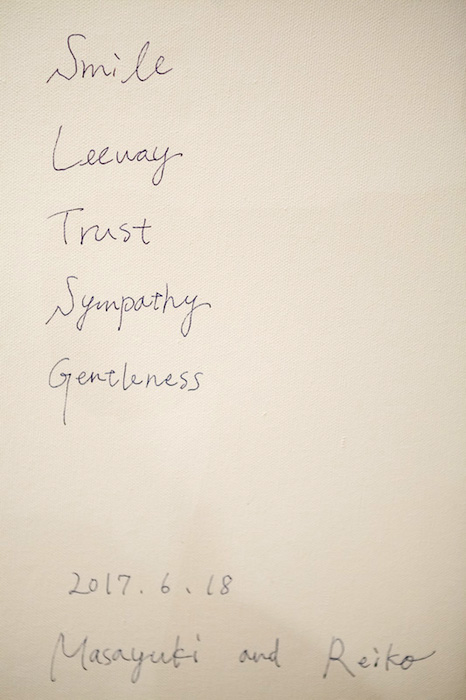 Smile
Leeway
Trust
Sympathy
Gentleness
2017.6.18
Masayuki and Reiko